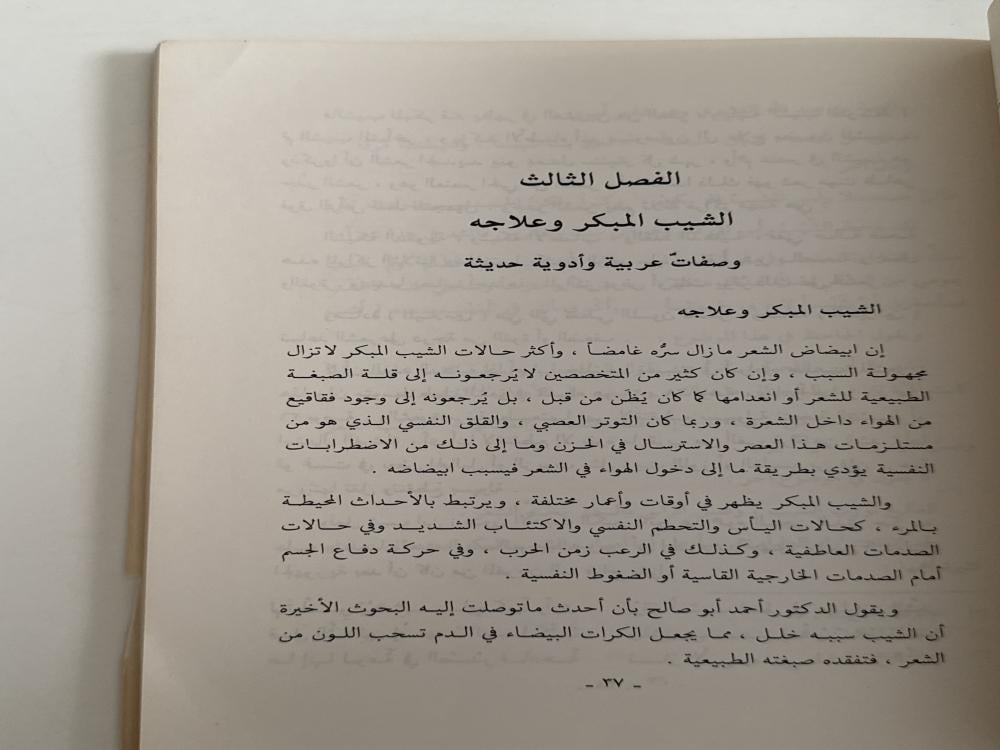 الفصل الثالث
الشيب المبكر وعلاجه
وصفات عربية وأدوية حديثة
الشيب المبكر وعلاجه
إن ابيضاض الشعر مازال سرُّه غامضاً ، وأكثر حالات الشيب المبكر لا تزال
مجهولة السبب ، وإن كان كثير من المتخصصين لا يُرجعونه إلى قلة الصبغة
الطبيعية للشعر أو انعدامها كما كان يُظَن من قبل ، بل يُرجعونه إلى وجود فقاقيع
من الهواء داخل الشعرة ، وربما كان التوتر العصبي ، والقلق النفسي الذي هو من
مستلزمات هذا العصر والاسترسال في الحزن وما إلى ذلك من الاضطرابات
النفسية يؤدي بطريقة ما إلى دخول الهواء في الشعر فيسبب ابيضاضه .
والشيب المبكر يظهر في أوقات وأعمار مختلفة ، ويرتبط بالأحداث المحيطة
بالمرء ، كحالات اليأس والتحطم النفسي والاكتئاب الشديد وفي حالات
الصدمات العاطفية ، وكذلك في الرعب زمن الحرب ، وفي حركة دفاع الجسم
أمام الصدمات الخارجية القاسية أو الضغوط النفسية .
ويقول الدكتور أحمد أبو صالح بأن أحدث ماتوصلت إليه البحوث الأخيرة
أن الشيب سببه خلل ، مما يجعل الكرات البيضاء في الدم تسحب اللون من
الشعر ، فتفقده صبغته الطبيعية .
ـ ٣٧ ـ